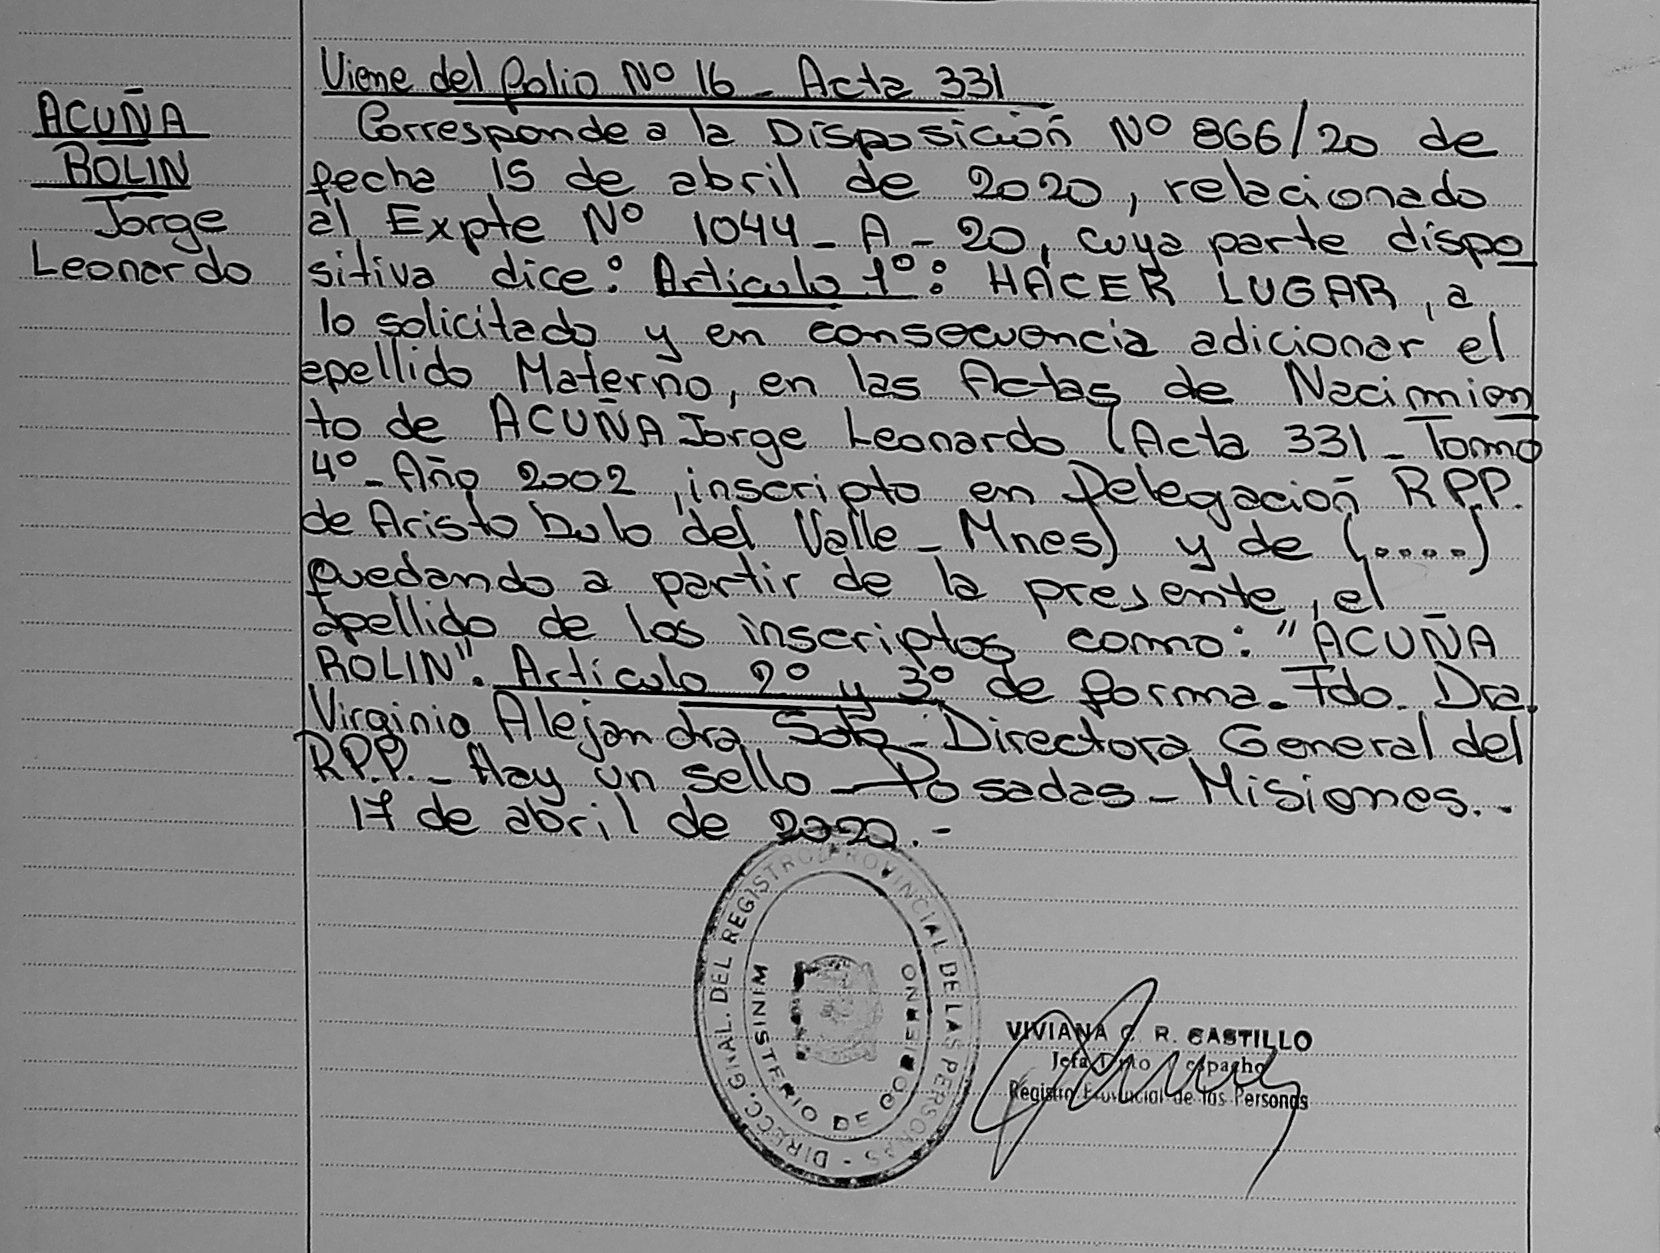 ACUÑA
ROLIN
Jorge
Leonardo
Viene del folio Nº 16 - Acta 331
Corresponde a la Disposición Nº 866/20 de
fecha 15 de abril de 2020, relacionado
al Expte Nº 1044 - A - 20, cuya parte dispo
sitiva dice: Artículo 1º: HACER LUGAR, a
lo solicitado y en consecuencia adicionar el
apellido Materno, en las Actas de Nacimien
to de ACUÑA Jorge Leonardo (Acta 331 - Tomo
4º - Año 2002, inscripto en Delegación RPP.
de Aristo bulo del Valle - Mnes) y de (.....)
quedando a partir de la presente, el
apellido de los inscriptos como: "ACUÑA
ROLIN". Artículo 2º y 3º de forma. Fdo. Dra.
Virginia Alejandra Soto - Directora General del
RPP. - Hay un sello - Posadas - Misiones. -
17 de abril de 2020. -
DIRECC. GRAL. DEL REGISTRO PROVINCIAL DE LAS PERSONAS -
MINISTERIO DE GOBIERNO
VIVIANA C. R. CASTILLO
Jefa Dpto Despacho
Registro Provincial de las Personas